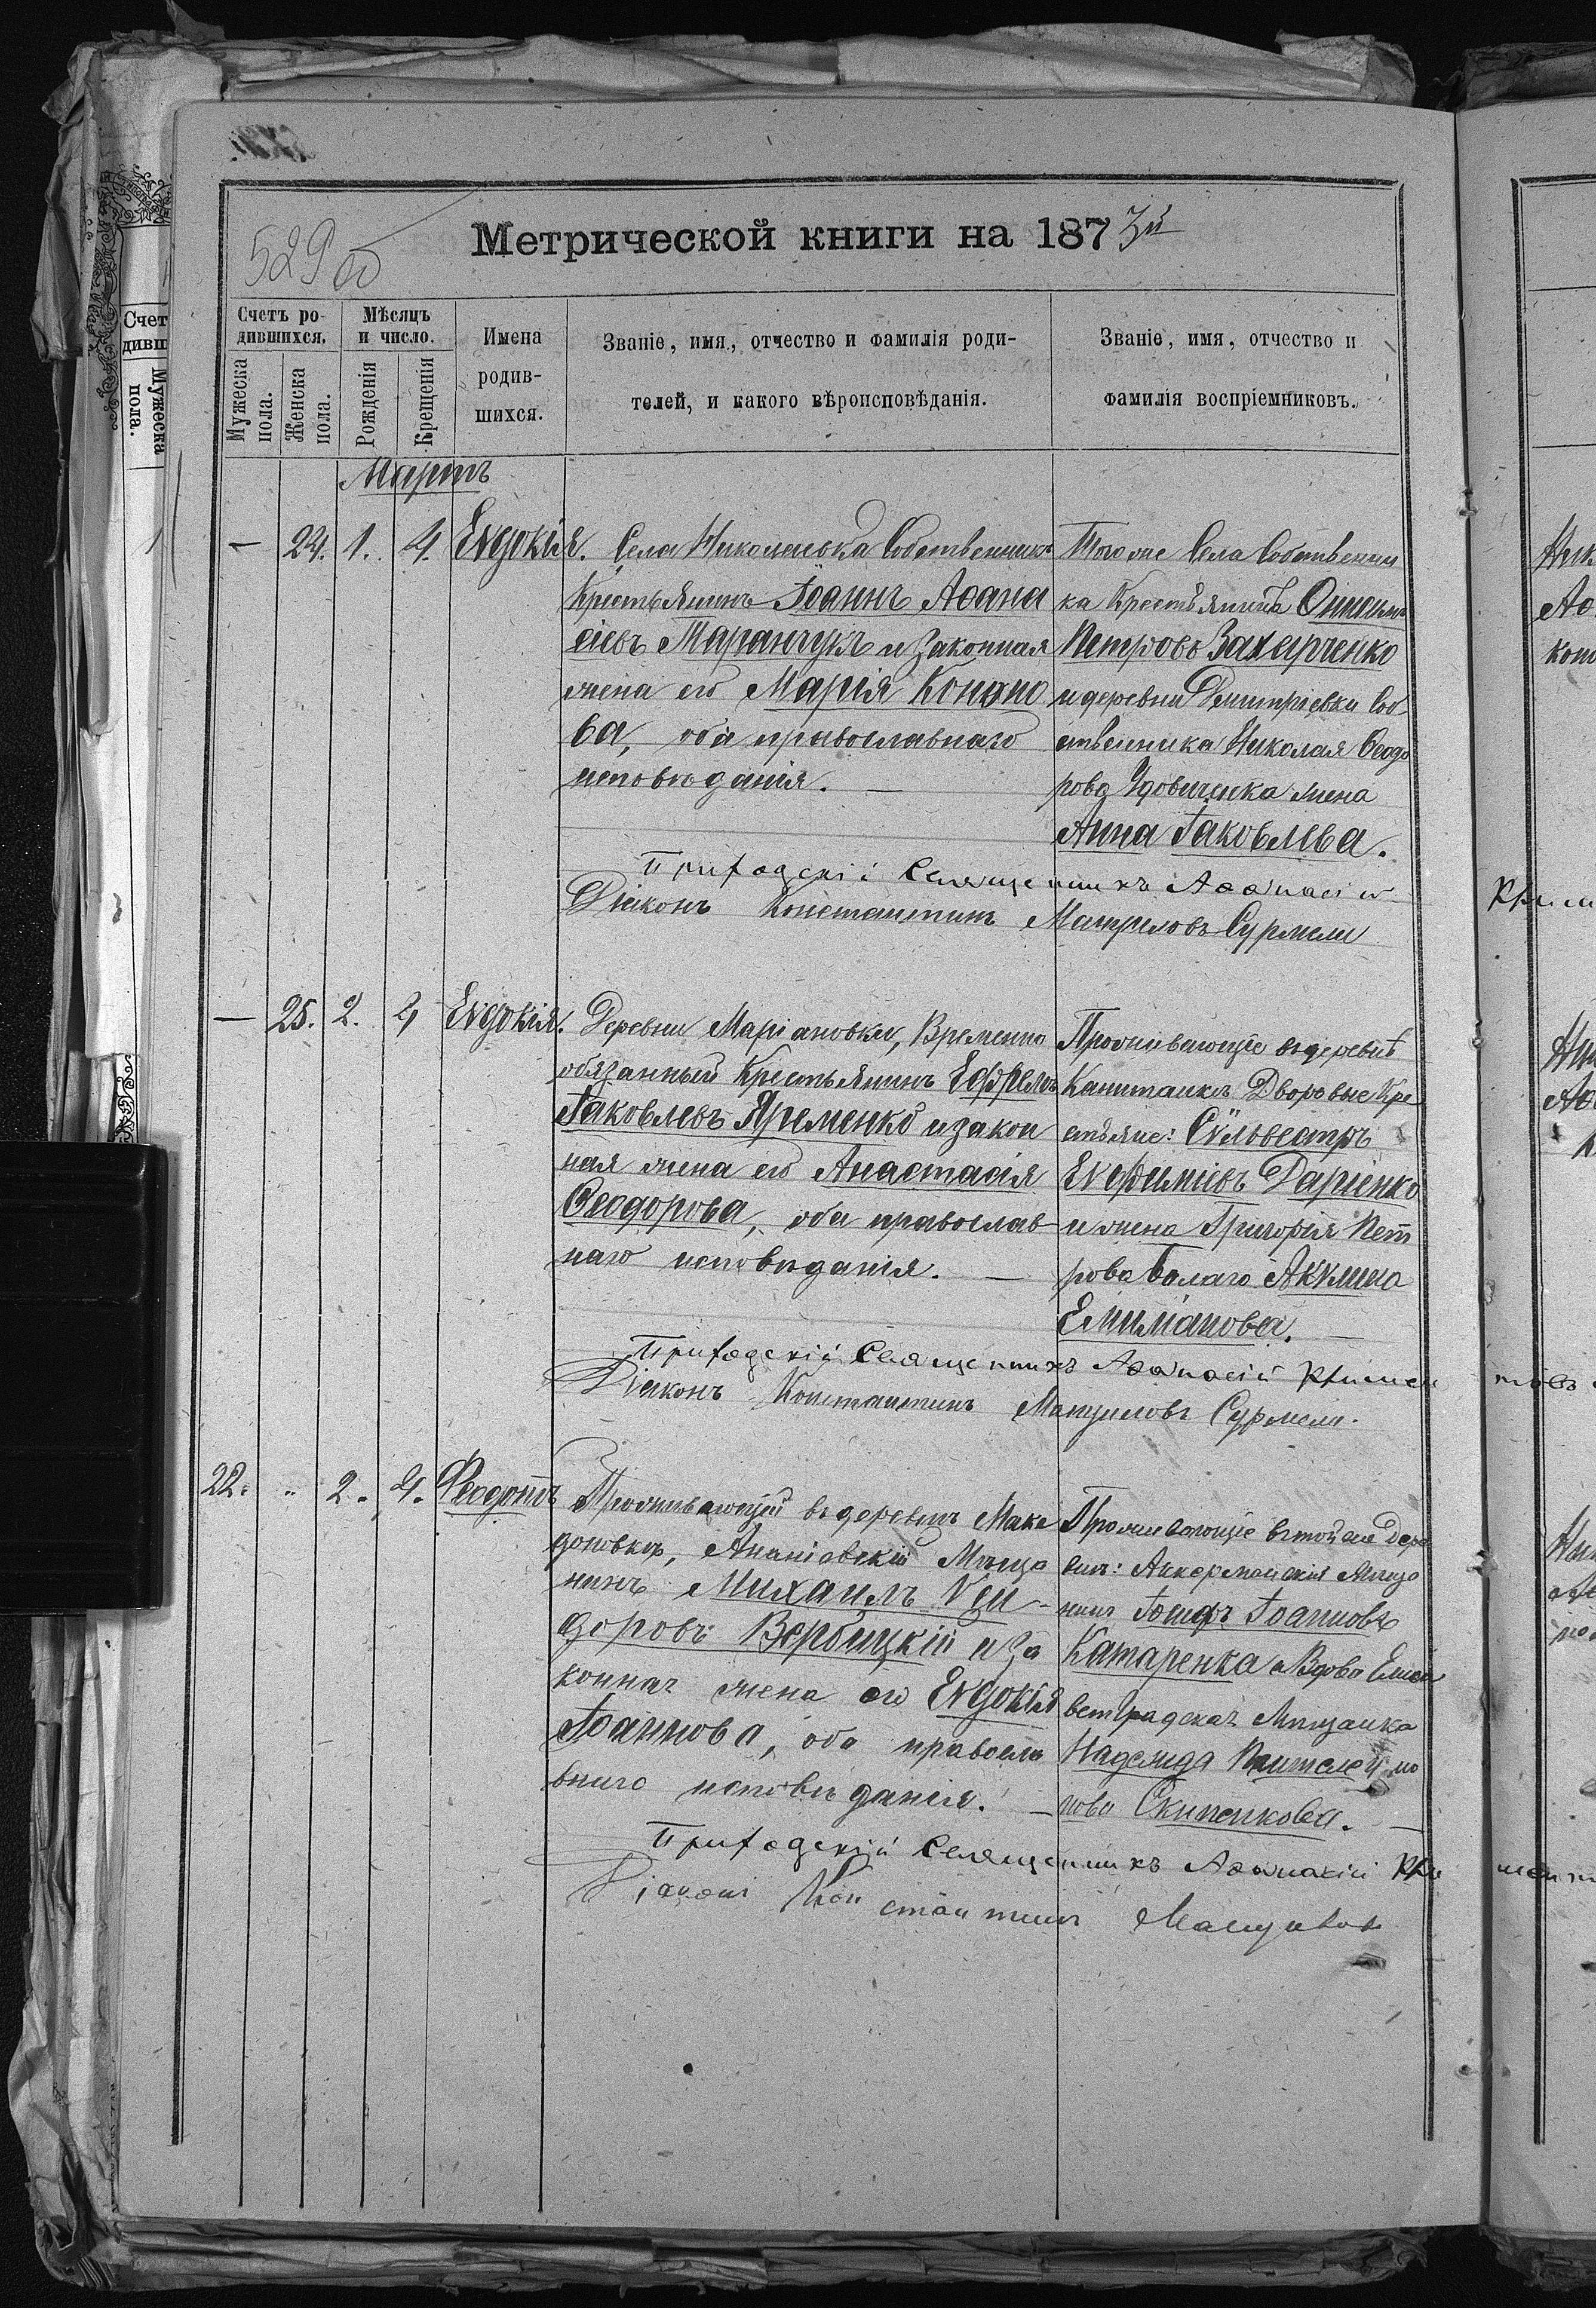 529 об
Метрической книги на 1873й
Счетъ ро-
дившихся.
Мѣсяцъ
и число.
Имена
родив-
шихся.
Званіе, имя, отчество и фамилія роди-
телей, и какого вѣроисповѣданія.
Званіе, имя, отчество и
фамилія воспріемниковъ.
Мужеска
пола.
Женска
пола.
Рожденія
Крещенія
Мартъ
— 24. 1. 4. Евдокія.
Села Николаевка Собственникъ
Крестьянинъ Іоаннъ Аѳана
сіевъ Маранчукъ и законная
жена его Марія Кононо
ва, оба православнаго
исповѣданія. —
Того же Села Собственни
ка Крестьянина Онисимъ
Петровъ Захарченко
и деревни Дмитріевки Соб
ственника Николая Ѳеодо
рова Удовиченка жена
Анна Іаковлева.
Приходскій Священникъ Аѳанасій
Діаконъ Константинъ Манжеловъ Сурмели
— 25. 2. 4 Евдокія.
Деревни Маріановки, Временно
обязанный Крестьянинъ Ефремъ
Іаковлевъ Яременко и закон
ная жена его Анастасія
Ѳеодорова, оба православ-
наго исповѣданія. —
Проживающіе въ деревнѣ
Капитанкѣ Дворовые Кре
стьяне: Сѵльвестръ
Евфиміевъ Даріенко
и жена Григорія Пет
рова Бѣлаго Акилина
Емиліанова. —
Приходскій Священникъ Аѳанасій
Діаконъ Константинъ Сурмели.
22. " 2. 4. Ѳеодотъ
Проживающій въ деревнѣ Маке
доновкѣ, Ананіевскій Мѣща
нинъ Михаилъ Уси-
доровъ Вербицкій и За
конная жена его Евдокія
Іоаннова, оба правосла
внаго исповѣданія. —
Проживающіе въ той же Дере
внѣ: Аккерманскій Мѣща
нинъ Іосифъ Іоанновъ
Катаренка и Вдова Елиса
ветградская Мѣщанка
Надежда
Скипенкова. —
Приходскій Священникъ Аѳанасій
Діаконъ Константинъ